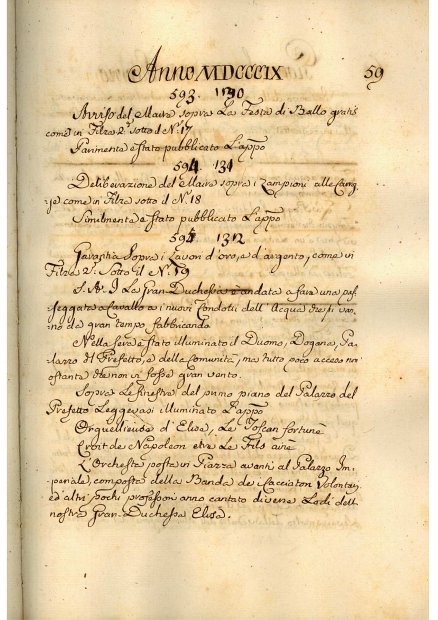 Anno MDCCCIX 59
593. 130
Avviso del Maire sopra La Festa di Ballo gratis
come in Filza 2ª sotto il N. 17
Parimente è stato pubblicato L'appo
594. 131
Deliberazione del Maire sopra i Lampioni alle
come in Filza sotto il N. 18
Similmente è stato pubblicato L'appo
595
Garantia Sopra i Lavori d'oro, e d'argento, come in
Filza 2ª Sotto il N. 19
S. A. I. La Gran-Duchessa è andata a fare una pas,
seggiata a Cavallo a i nuovi Condotti dell'Acqua che si van,
no da gran tempo fabbricando
Nella sera è stato illuminato il Duomo, Dogana, Pa,
lazzo del Prefetto, e della Comunità, ma tutto poco acceso non
ostante che non vi fosse gran vento.
Sopra Le finestre del primo piano del Palazzo del
Prefetto Leggevasi illuminato L'appo
Orguellieuse d'Elisa, La Toscan fortuné
Croit de Napoleon etre Le Fils ainé
L'Orchestra posta in Piazza avanti al Palazzo Im,
periale, composta della Banda de Cacciatori Volontarj,
ed altri pochi professori anno cantato diverse Lodi della
nostra Gran-Duchessa Elisa.